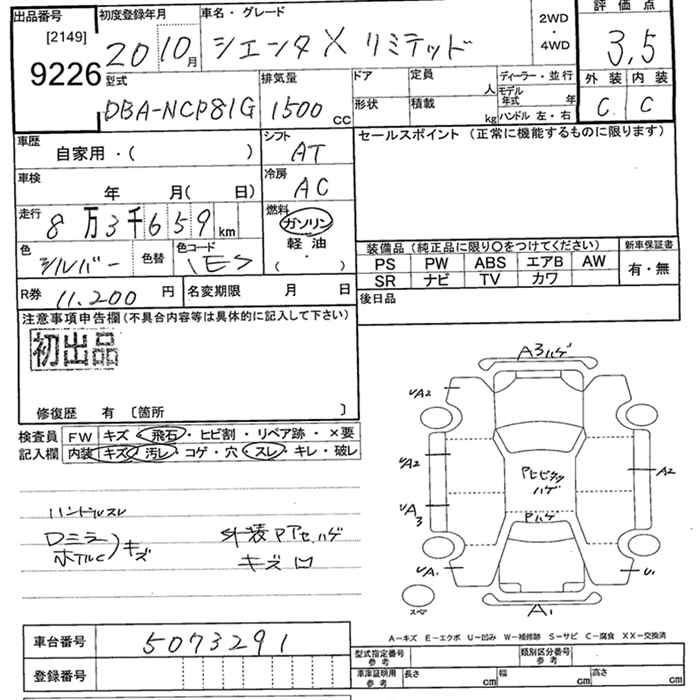 出品番号 初度登録年月 車名・グレード 2WD・4WD 評価点
[2149] 9226 20 10月 シエンタ X リミテッド 3,5
型式 排気量 ドア 定員 人 ディーラー・並行 外装 内装
DBA-NCP81G 1500 cc 形状 積載 kg モデル年式 年 ハンドル 左・右 C C
車歴 自家用・( ) シフト AT セールスポイント (正常に機能するものに限ります)
車検 年 月( 日) 冷房 AC
走行 8万3千659 km 燃料 ガソリン 軽油 ( ・ )
色 シルバー 色替 色コード 1E7
装備品 (純正品に限り○をつけてください) 新車保証書
PS PW ABS エアB AW 有・無
SR ナビ TV カワ
R券 11,200 円 名変期限 月 日 後日品
注意事項申告欄(不具合内容等は具体的に記入して下さい)
初出品
修復歴 有 〔箇所 〕
検査員記入欄 FW キズ・飛石・ヒビ割・リペア跡・×要
内装 キズ・汚レ・コゲ・穴・スレ・キレ・破レ
ハンドルスレ
Dミラー ホイルC キズ
外装 P アセ、ハゲ
キズ 凹
A3ハゲ
UA2
UA2 A2
Pヒビタッチ ハゲ
UA3 Pハゲ
UA1 U1
スペア A1
A-キズ E-エクボ U-凹み W-補修跡 S-サビ C-腐食 XX-交換済
車台番号 5073291
登録番号
型式指定番号 参考 類別区分番号 参考
車庫証明用 参考 長さ cm 幅 cm 高さ cm